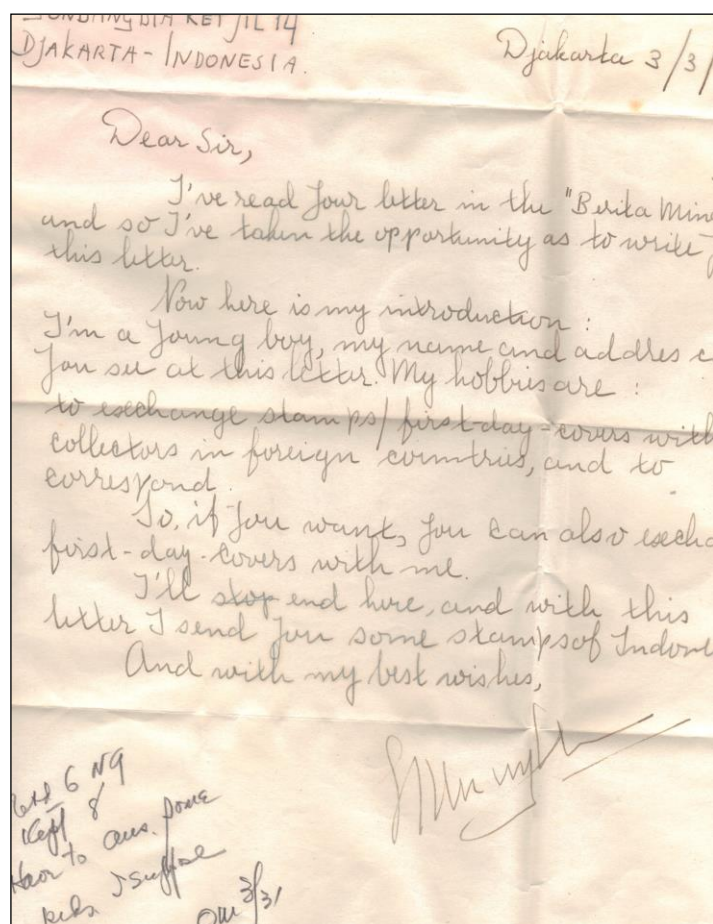 DJAKARTA - INDONESIA.
Djakarta 3/3/
Dear Sir,
I've read your letter in the "Berita Mine
and so I've taken the opportunity as to write
this letter.
Now here is my introduction :
I'm a young boy, my name and addres c
you see at this letter. My hobbies are :
to exchange stamps/first-day-covers with
collectors in foreign countries, and to
correspond.
So, if you want, you can also exch
first-day-covers with me.
I'll stop end here, and with this
letter I send you some stamps of Indone
And with my best wishes,
6 NG
Kept 8
to ans. some
3/31